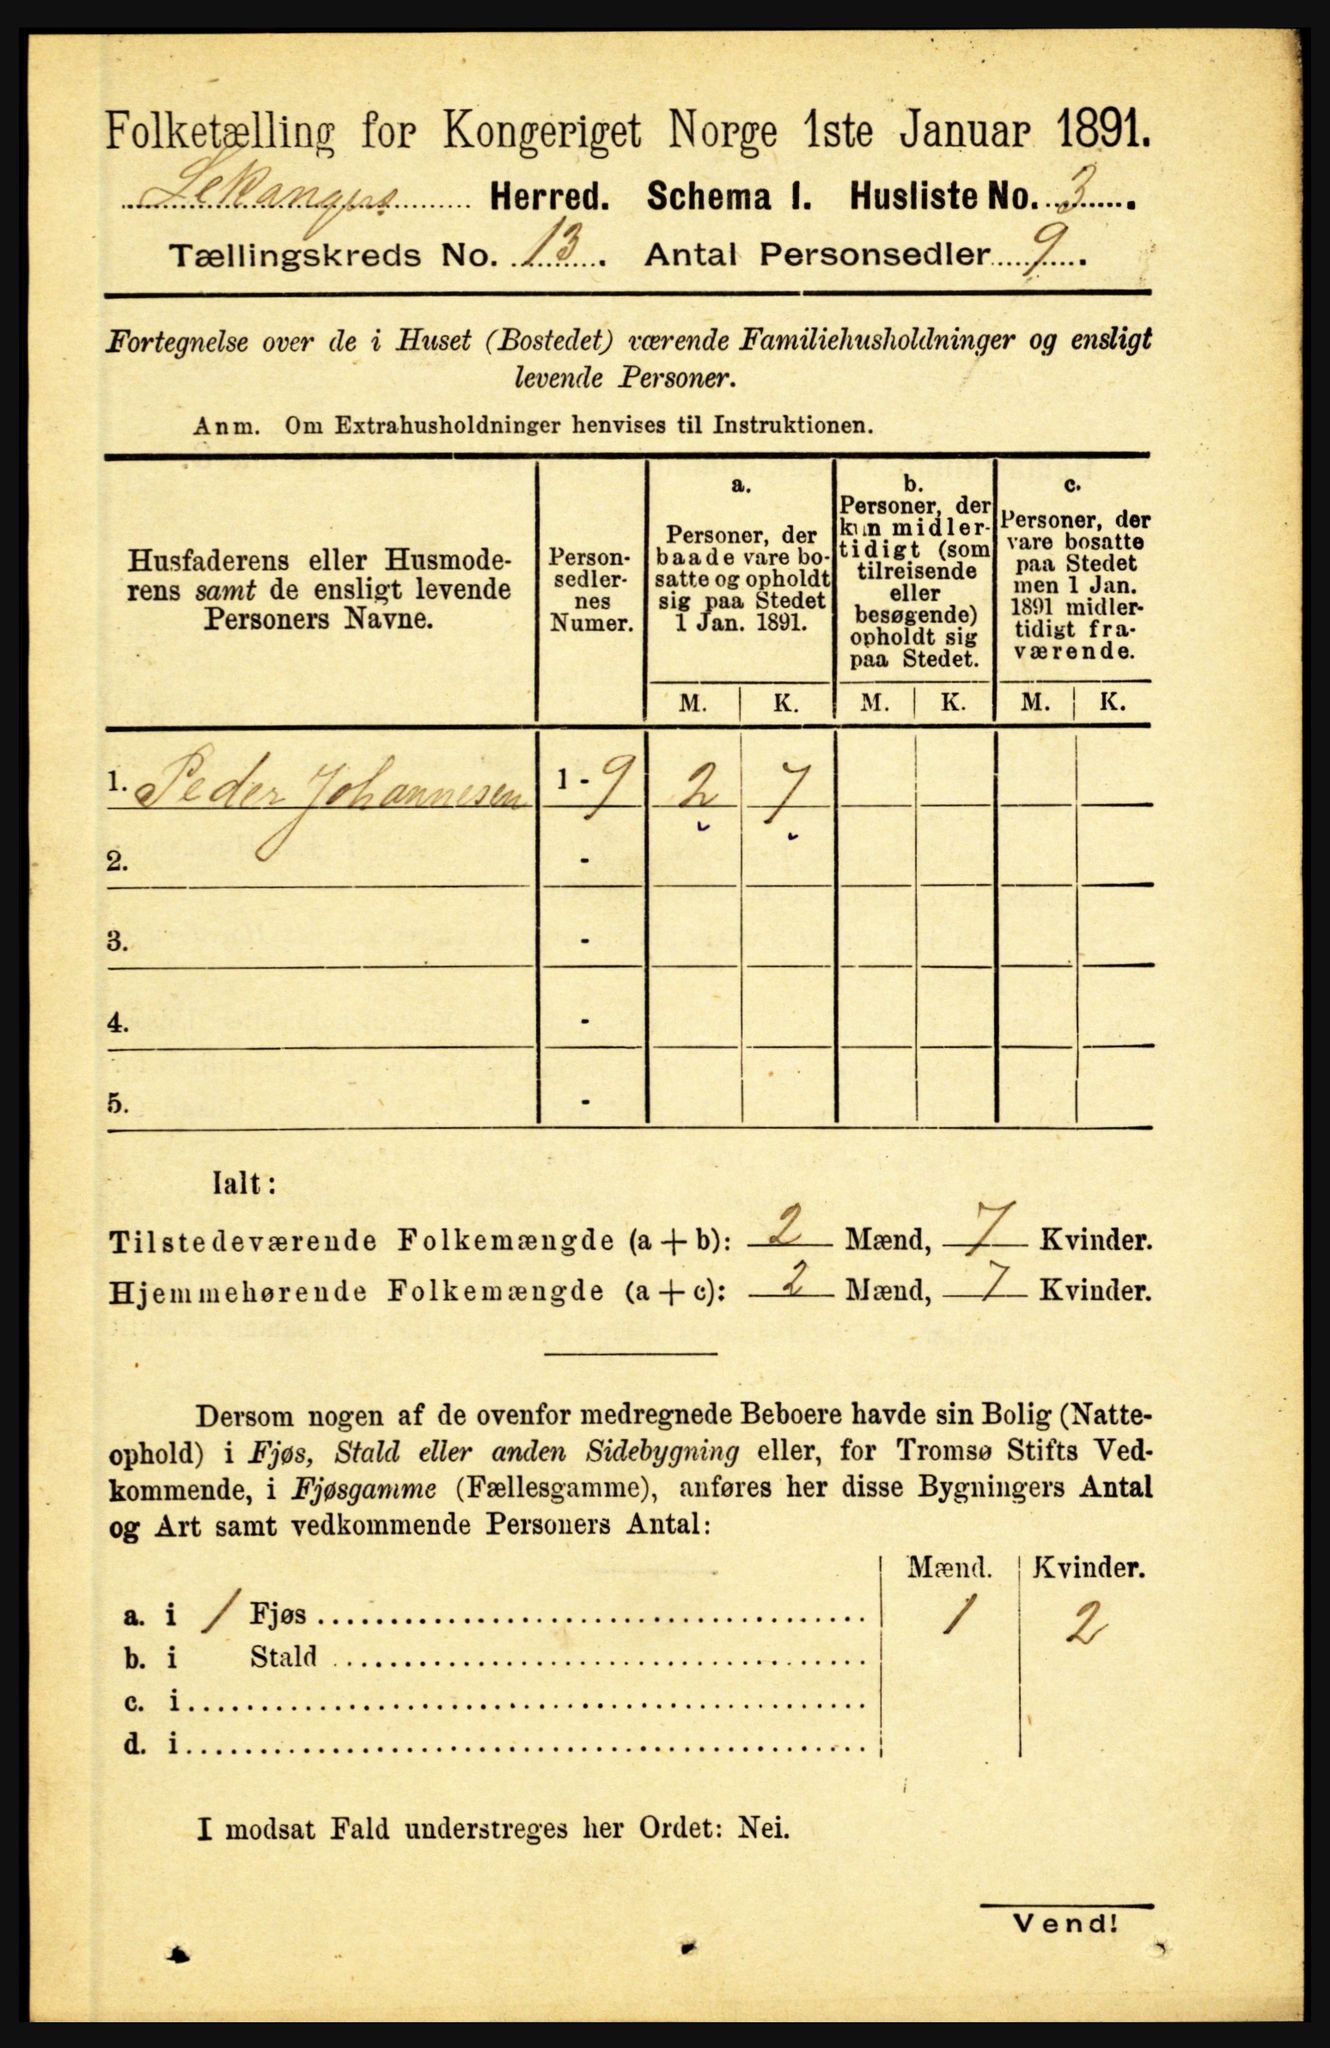 Folketælling for Kongeriget Norge 1ste Januar 1891.
Lekangers Herred. Schema I. Husliste No. 3.
Tællingskreds No. 13. Antal Personsedler 9.
Fortegnelse over de i Huset (Bostedet) værende Familiehusholdninger og ensligt
levende Personer.
Anm. Om Extrahusholdninger henvises til Instruktionen.
Husfaderens eller Husmode-
rens samt de ensligt levende
Personers Navne.
Person-
sedler-
nes
Numer.
a.
Personer, der
baade vare bo-
satte og opholdt
sig paa Stedet
1 Jan. 1891.
b.
Personer, der
kun midler-
tidigt (som
tilreisende
eller
besøgende)
opholdt sig
paa Stedet.
c.
Personer, der
vare bosatte
paa Stedet
men 1 Jan.
1891 midler-
tidigt fra-
værende.
M. K. M. K. M. K.
1. Peder Johannesen 1 - 9 2 7
2. -
3. -
4. -
5. -
Ialt:
Tilstedeværende Folkemængde (a + b): 2 Mænd, 7 Kvinder.
Hjemmehørende Folkemængde (a + c): 2 Mænd, 7 Kvinder.
Dersom nogen af de ovenfor medregnede Beboere havde sin Bolig (Natte-
ophold) i Fjøs, Stald eller anden Sidebygning eller, for Tromsø Stifts Ved-
kommende, i Fjøsgamme (Fællesgamme), anføres her disse Bygningers Antal
og Art samt vedkommende Personers Antal:
Mænd. Kvinder.
a. i 1 Fjøs 1 2
b. i Stald
c. i
d. i
I modsat Fald understreges her Ordet: Nei.
Vend!